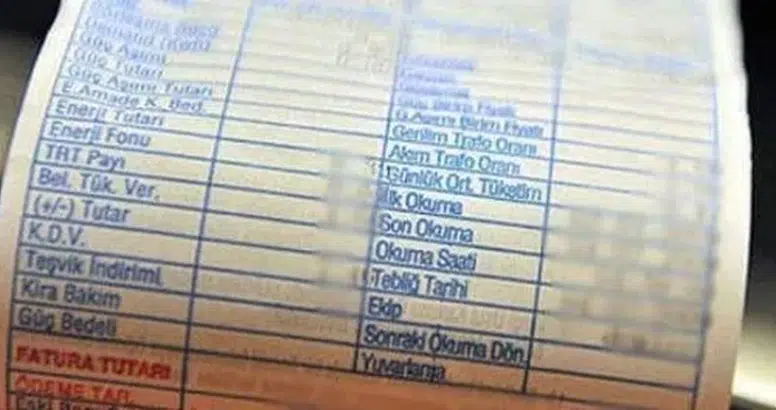 Güç Aşımı
Güç Tutarı
Güç Aşımı Tutarı
E.Amade K. Bed.
Enerji Tutarı
Enerji Fonu
TRT Payı
Bel. Tük. Ver.
(+/-) Tutar
K.D.V.
Teşvik İndirimi
Kira Bakım
Güç Bedeli
FATURA TUTARI
ÖDEME TAR.
Güç Birim Fiyatı
G.Aşımı Birim Fiyatı
Gerilim Trafo Oranı
Akım Trafo Oranı
Günlük Ort. Tüketim
İlk Okuma
Son Okuma
Okuma Saati
Tebliğ Tarihi
Ekip
Sonraki Okuma Dön.
Yuvarlama